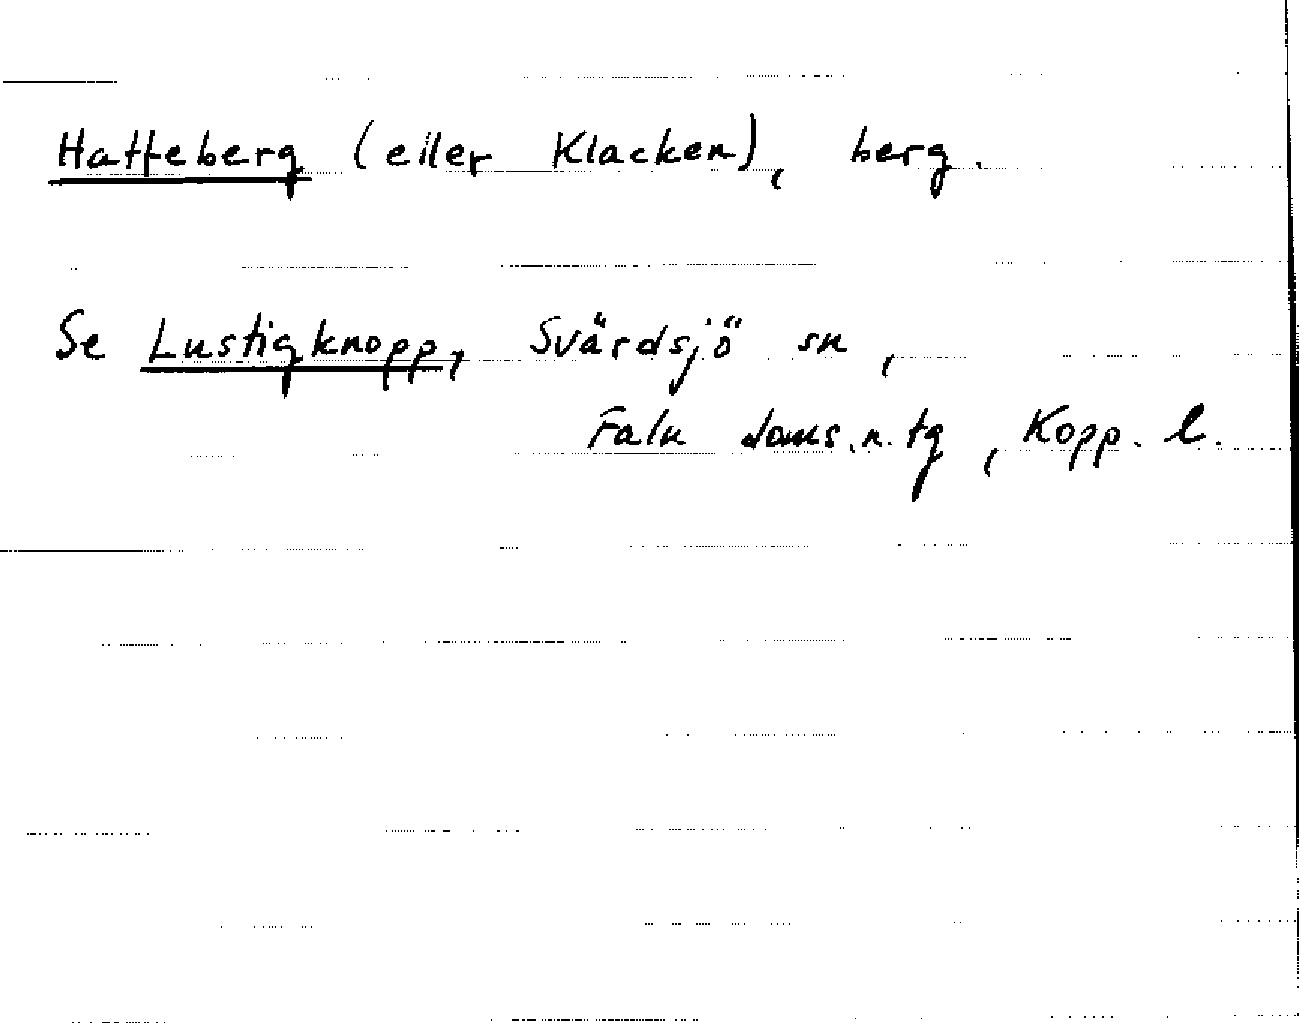 Hatteberg (eller Klacken), berg.
Se Lustigknopp, Svärdsjö sn,
Falu doms.n. tg, Kopp. l.